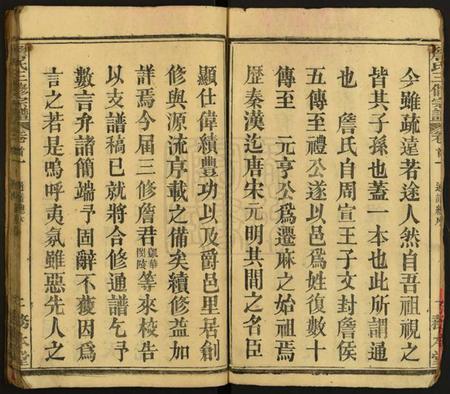 今雖疏遠若途人然自吾祖視之
皆其子孫也蓋一本也此所謂通
也 詹氏自周宣王子文封詹侯
五傳至 禮公遂以邑爲姓復數十
傳至 元亨公爲遷麻之始祖焉
歷秦漢迄唐宋元明其間之名臣
詹氏三修宗譜 卷首一
務本堂
顯仕偉績豐功以及爵邑里居創
修與源流序載之備矣續修益加
詳焉今届三修詹君等來梭告
以支譜稿已就將合修通譜乞予
數言弁諸簡端予固辭不獲因爲
言之若是嗚呼夷氛雖惡先人之
詹氏三修宗譜 卷首一
務本堂